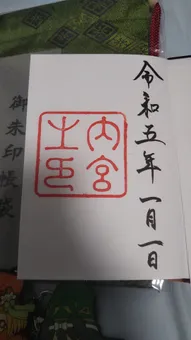 令和五年一月一日
内宮之印
御朱印帳袋